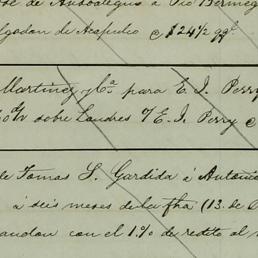 de Ambategui á Pio Bermeg
Algodon de Acapulco @ $24½ qql.
Martinez y Ca. para E. J. Perry
60 d/v sobre Londres 7/ E. J. Perry @
de Tomas S. Gardida á Antonio
á seis meses de la fha (13. de
con el 1% de redito al